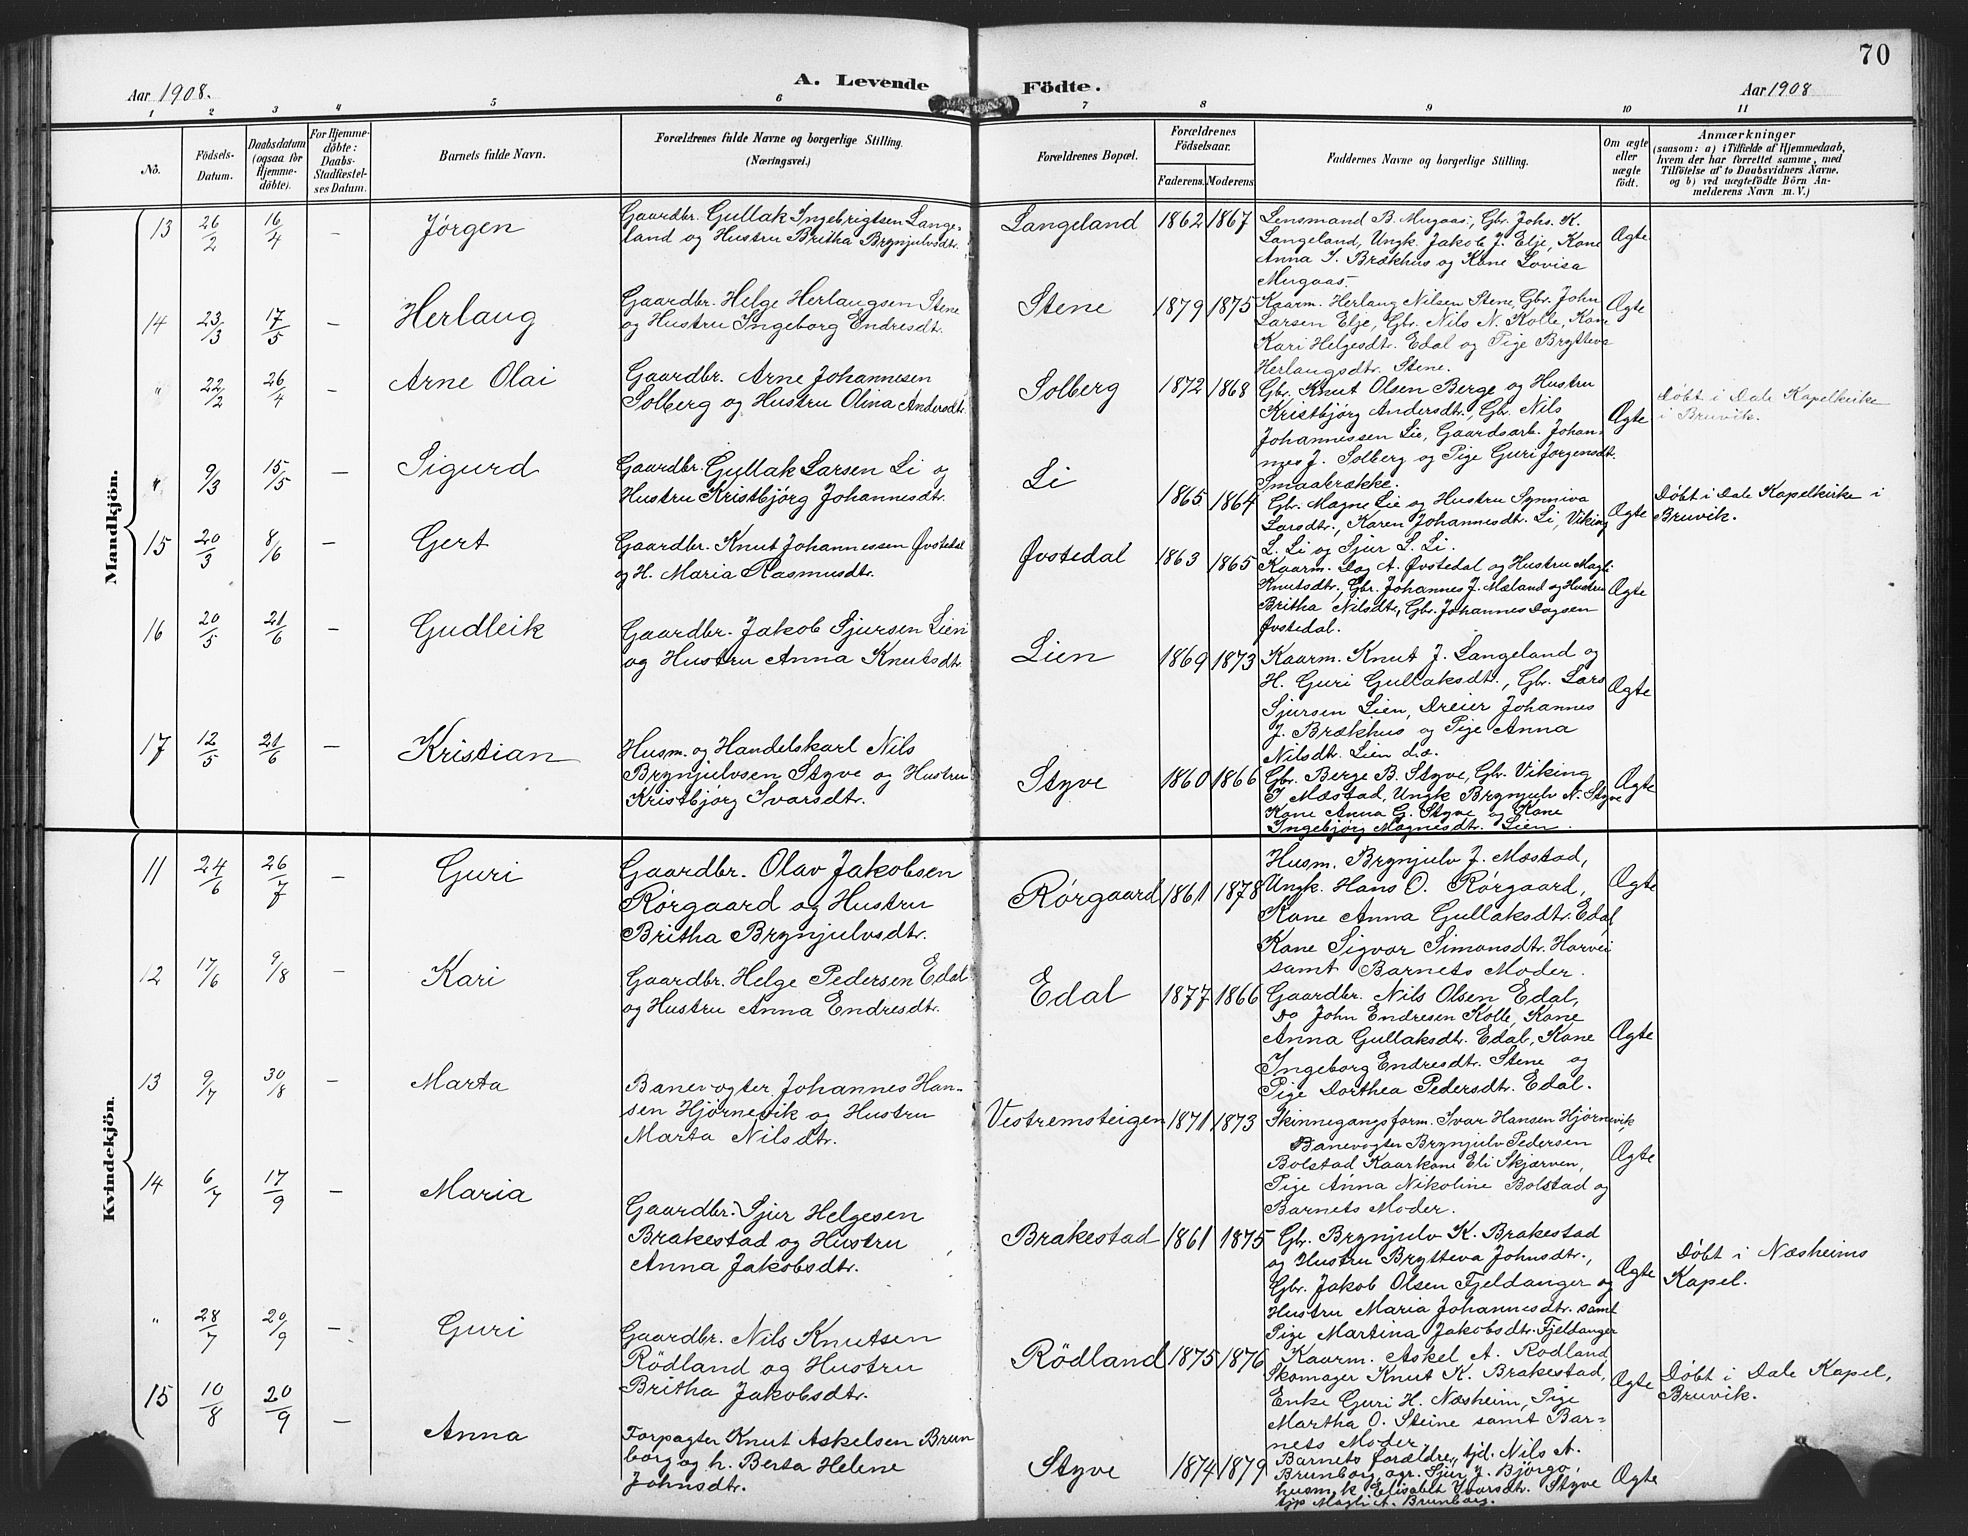 70
Aar 1908.
A. Levende
Födte.
Aar 1908
1 2 3 4 5 6 7 8 9 10 11
No.
Födsels-
Datum.
Daabsdatum
(ogsaa for
Hjemme-
döbte).
For Hjemme-
döbte:
Daabs-
Stadfæstel-
ses Datum.
Barnets fulde Navn.
Forældrenes fulde Navne og borgerlige Stilling.
(Næringsvei.)
Forældrenes Bopæl.
Forældrenes
Födselsaar.
Faderens.
Moderens
Faddernes Navne og borgerlige Stilling.
Om ægte
eller
uægte
födt.
Anmærkninger
(saasom: a) i Tilfælde af Hjemmedaab,
hvem der har forrettet samme, med
Tilföielse af to Daabsvidners Navne.
og b) ved uægtefödte Börn An-
melderens Navn m. V.)
Mandkjön.
13 26/2 16/4 – Jørgen
Gaardbr. Gullak Ingebrigtsen Lange-
land og Hustru Britha Brynjulvsdtr.
Langeland 1862 1867
Lensmand B. Mugaas, Gbr. Johs. K.
Langeland, Ungk. Jakob J. Elje, Kone
Anna I. Brækhus og Kone Lovisa
Mugaas.
Ægte
14 23/3 17/5 – Herlaug
Gaardbr. Helge Herlaugsen Stene
og Hustru Ingeborg Endresdt.
Stene 1879 1875
Kaarm. Herlaug Nilsen Stene, Gbr. John
Larsen Elje, Gbr. Nils N. Kolle, Kone
Kari Helgesdtr. Edal og Pige Brytteva
Herlaugsdtr. Stene.
Ægte
" 22/2 26/4 – Arne Olai
Gaardbr. Arne Johannesen
Solberg og Hustru Olina Andersdtr.
Solberg 1872 1868
Gbr. Knut Olsen Berge og Hustru
Kristbjørg Andersdtr., Gbr. Nils
Johannessen Lie, Gaardsarb. Johan-
nes J. Solberg og Pige Guri Jørgensdt.
Smaabrække.
Ægte
Døbt i Dale Kapelkirke
i Bruvik.
" 9/3 15/5 – Sigurd
Gaardbr. Gullak Larsen Li og
Hustru Kristbjørg Johannesdtr.
Li 1865 1864
Gbr. Magne Lie og Hustru Synniva
Larsdtr., Karen Johannesdtr. Li, Viking
L. Li og Sjur L. Li.
Ægte
Døbt i Dale Kapelkirke i
Bruvik.
15 20/3 8/6 – Gert
Gaardbr. Knut Johannessen Øvstedal
og H. Maria Rasmusdtr.
Øvstedal 1863 1865
Kaarm. Dag A. Øvstedal og Hustru Magli
Knutsdtr., Gbr. Johannes J. Mæland og Hustru
Britha Nilsdtr., Gbr. Johannes Dagsen
Øvstedal.
Ægte
16 20/5 21/6 – Gudleik
Gaardbr. Jakob Sjursen Lien
og Hustru Anna Knutsdtr.
Lien 1869 1873
Kaarm. Knut J. Langeland og
H. Guri Gullaksdt., Gbr. Lars
Sjursen Lien, Dreier Johannes
J. Brækhus og Pige Anna
Nilsdtr. Lien
Ægte
17 12/5 21/6 – Kristian
Husm. og Handelskarl Nils
Brynjulvsen Styve og Hustru
Kristbjørg Ivarsdtr.
Styve 1860 1866
Gbr. Berge B. Styve, Gbr. Viking
I Mæstad, Ungk Brynjulv N. Styve
Kone Anna G. Styve og Kone
Ingebjørg Magnesdt. Lien.
Ægte
Kvindekjön.
11 24/6 26/7 – Guri
Gaardbr. Olav Jakobsen
Rørgaard og Hustru
Britha Brynjulvsdtr.
Rørgaard 1861 1878
Husm. Brynjulv J. Mæstad,
Ungk. Hans O. Rørgaard,
Kone Anna Gullaksdtr. Edal
Kone Sigvor Simonsdtr. Horvei
samt Barnets Moder.
Ægte
12 17/6 9/8 – Kari
Gaardbr. Helge Pedersen Edal
og Hustru Anna Endresdtr.
Edal 1877 1866
Gaardbr. Nils Olsen Edal,
Do John Endresen Kolle, Kone
Anna Gullaksdtr. Edal, Kone
Ingeborg Endresdtr. Stene og
Pige Dorthea Pedersdtr. Edal.
Ægte
13 9/7 30/8 – Marta
Banevogter Johannes Han-
sen Hjørnevik og Hustru
Marta Nilsdtr.
Vestremsteigen 1871 1873
Skinnegangsform. Ivar Hansen Hjørnevik
Banevogter Brynjulv Pedersen
Bolstad Kaarkone Eli Skjærven,
Pige Anna Nikoline Bolstad og
Barnets Moder.
Ægte
14 6/7 17/9 – Maria
Gaardbr. Sjur Helgesen
Brakestad og Hustru
Anna Jakobsdtr.
Brakestad 1861 1875
Gbr. Brynjulv K. Brakestad
og Hustru Brytteva Johnsdtr.,
Gbr. Jakob Olsen Fjeldanger og
Hustru Maria Johannesdtr. samt
Pige Martina Jakobsdtr. Fjeldanger
Ægte
Døbt i Næsheims
Kapel.
" 28/7 20/9 – Guri
Gaardbr. Nils Knutsen
Rödland og Hustru
Britha Jakobsdtr.
Rödland 1875 1876
Kaarm. Askel A. Rödland
Skomager Knut K. Brakestad,
Enke Guri H. Næsheim, Pige
Martha O. Steine samt Bar-
nets Moder.
Ægte
Døbt i Dale Kapel,
Bruvik.
15 10/8 20/9 – Anna
Forpagter Knut Askelsen Brun
borg og h. Berta Helene
Johnsdtr.
Styve 1874 1879
Barnets forældre, tjd. Nils A.
Brunborg, agr. Sjur J. Bjørgo,
husm.k Elisabet Ivarsdtr. Styve
Magli A. Brunborg.
Ægte